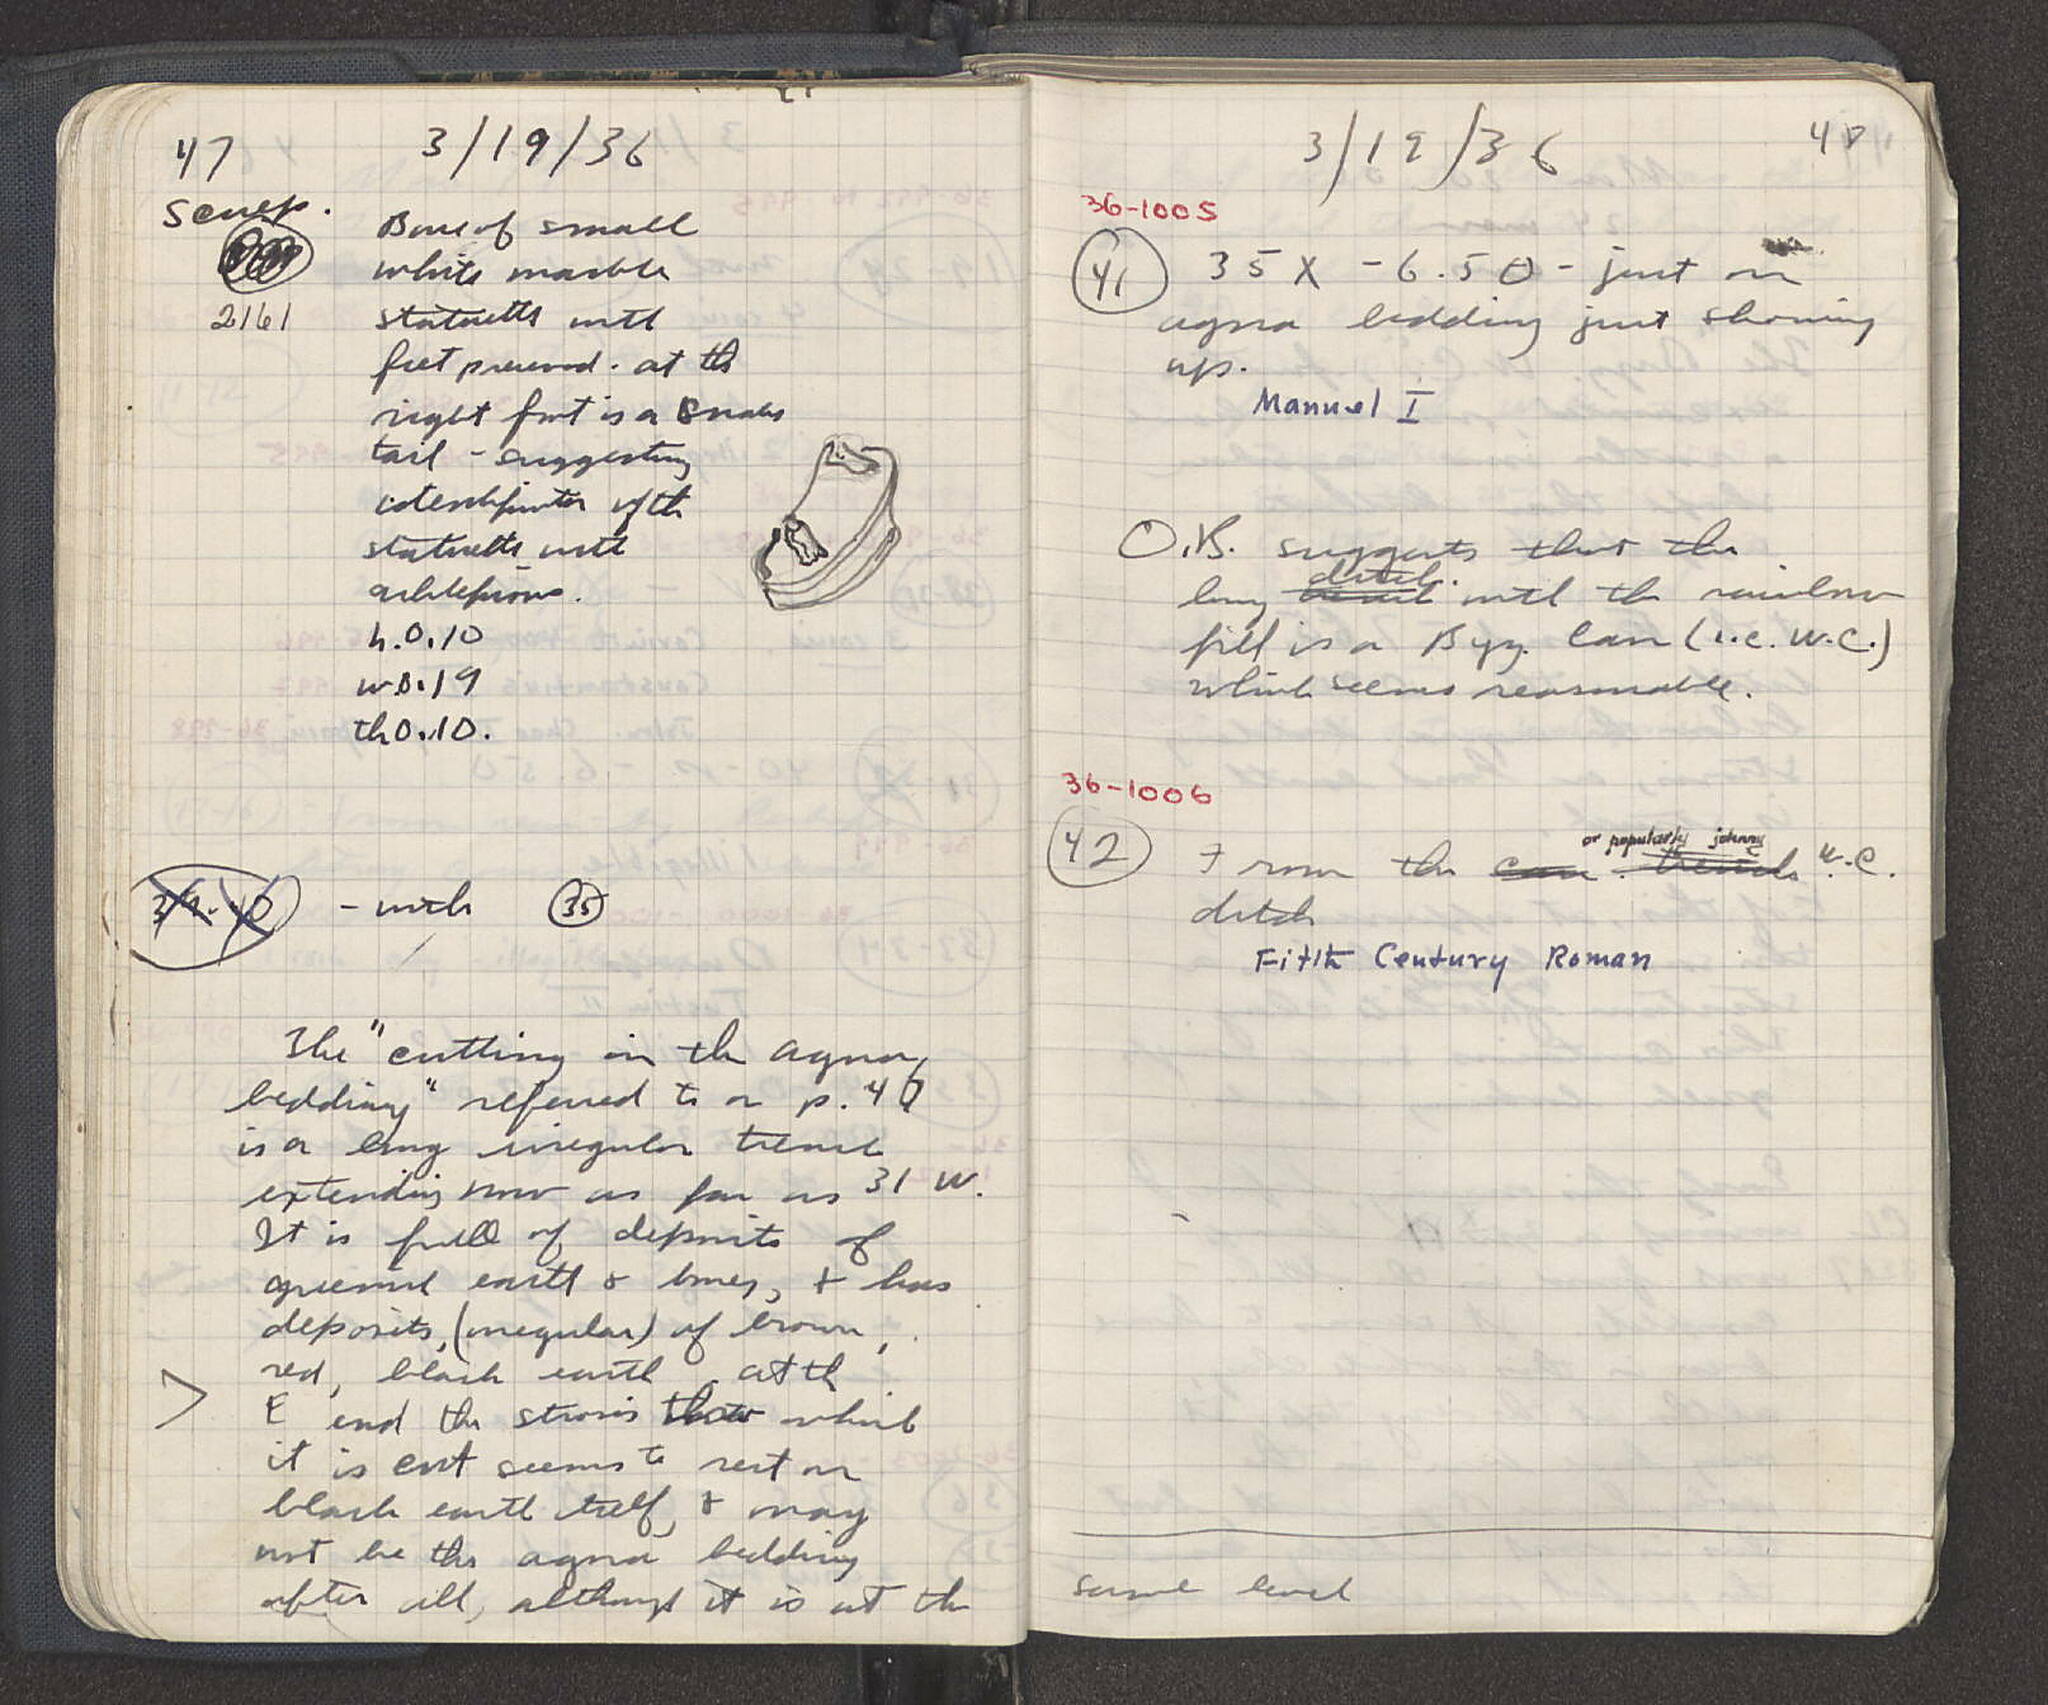 47
3/19/36
Sculp.
2161
Base of small
white marble
statuette with
feet preserved. at the
right foot is a snakes
tail - suggesting
identification of the
statuette with
Asklepios.
h.0.10
w 0.19
th0.10.
39-40 - with 35
The "cutting in the agora
bedding" referred to on p. 40
is a long irregular trench
extending now as far as 31 W.
It is full of deposits of
greenish earth & bones, & has
deposits, (irregular) of brown,
red, black earth. at the
> E end the strosis thru which
it is cut seems to rest on
black earth itself, & may
not be the agora bedding
after all, although it is at the
3/19/36
48
36-1005
41 35 X - 6.50 - just on
agora bedding just showing
up.
Manuel I
O.B. suggests that the
long trench ditch. with the rainbow
fill is a Byz. Can (i.e. W.C.)
which seems reasonable.
36-1006
or popularly johnny
42 From the can trench W.C.
ditch
Fifth Century Roman
same level